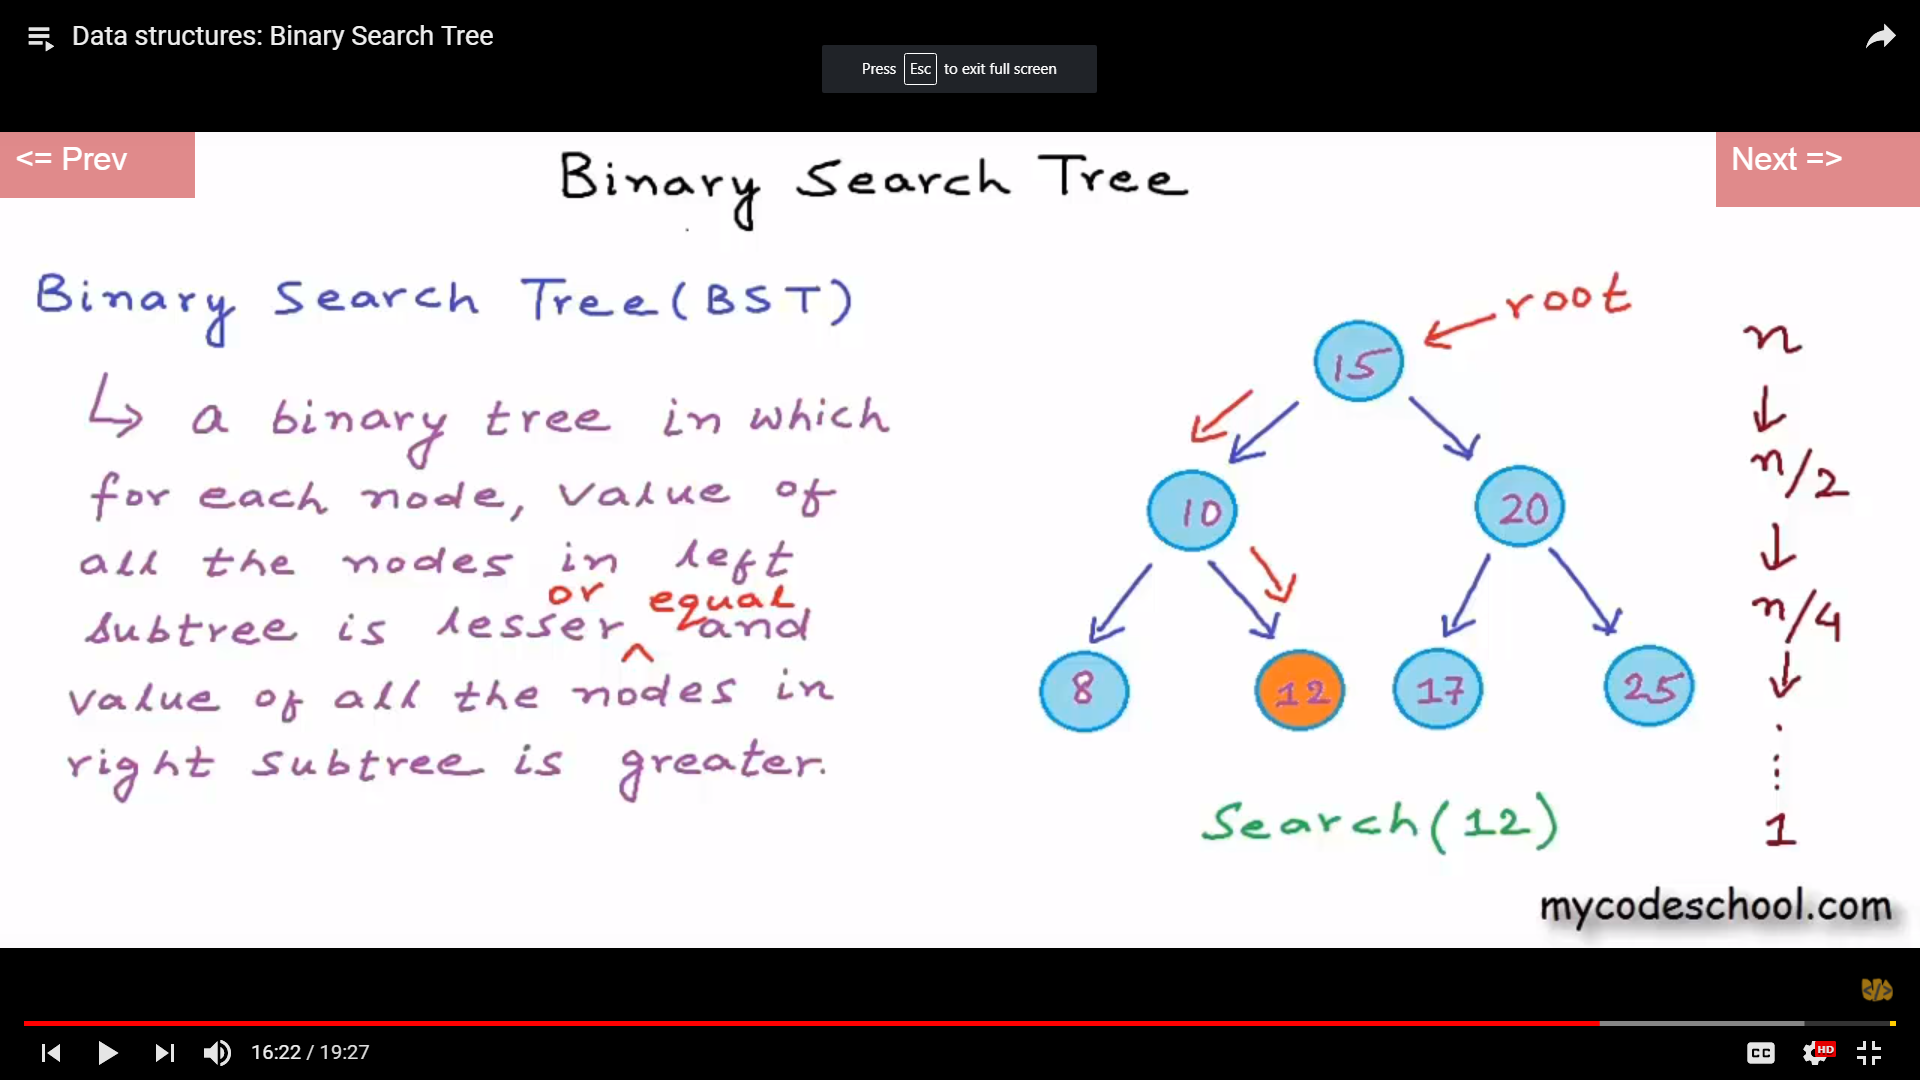 Data structures: Binary Search Tree
Press Esc to exit full screen
<= Prev
Next =>
Binary Search Tree
Binary Search Tree (BST)
↳ a binary tree in which
for each node, value of
all the nodes in left
or equal
subtree is lesser ^ and
value of all the nodes in
right subtree is greater.
root
15
10
20
8
12
17
25
Search(12)
n
↓
n/2
↓
n/4
↓
⋮
1
mycodeschool.com
</>
16:22 / 19:27
CC
HD